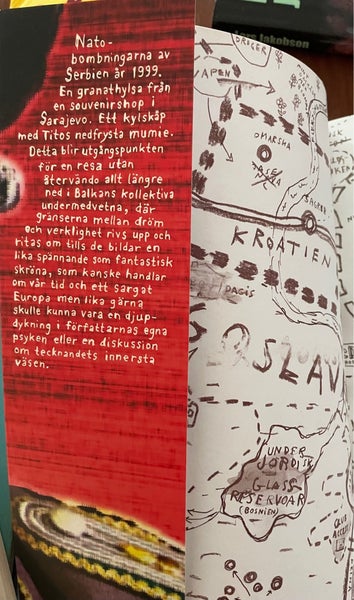 Lars Jakobson
Nato-
bombningarna av
Serbien år 1999.
En granathylsa från
en souvenirshop i
Sarajevo. Ett kylskåp
med Titos nedfrysta mumie.
Detta blir utgångspunkten
för en resa utan
återvändo allt längre
ned i Balkans kollektiva
undermedvetna, där
gränserna mellan dröm
och verklighet rivs upp och
ritas om tills de bildar en
lika spännande som fantastisk
skröna, som kanske handlar
om vår tid och ett sargat
Europa men lika gärna
skulle kunna vara en djup-
dykning i författarnas egna
psyken eller en discussion
om tecknandets innersta
väsen.
DROGER
VAPEN
OMARSKA
KROATIEN
DAGIS
OSLAV
UNDER
JORDISK
GLASS
RESERVOAR
(BOSNIEN)